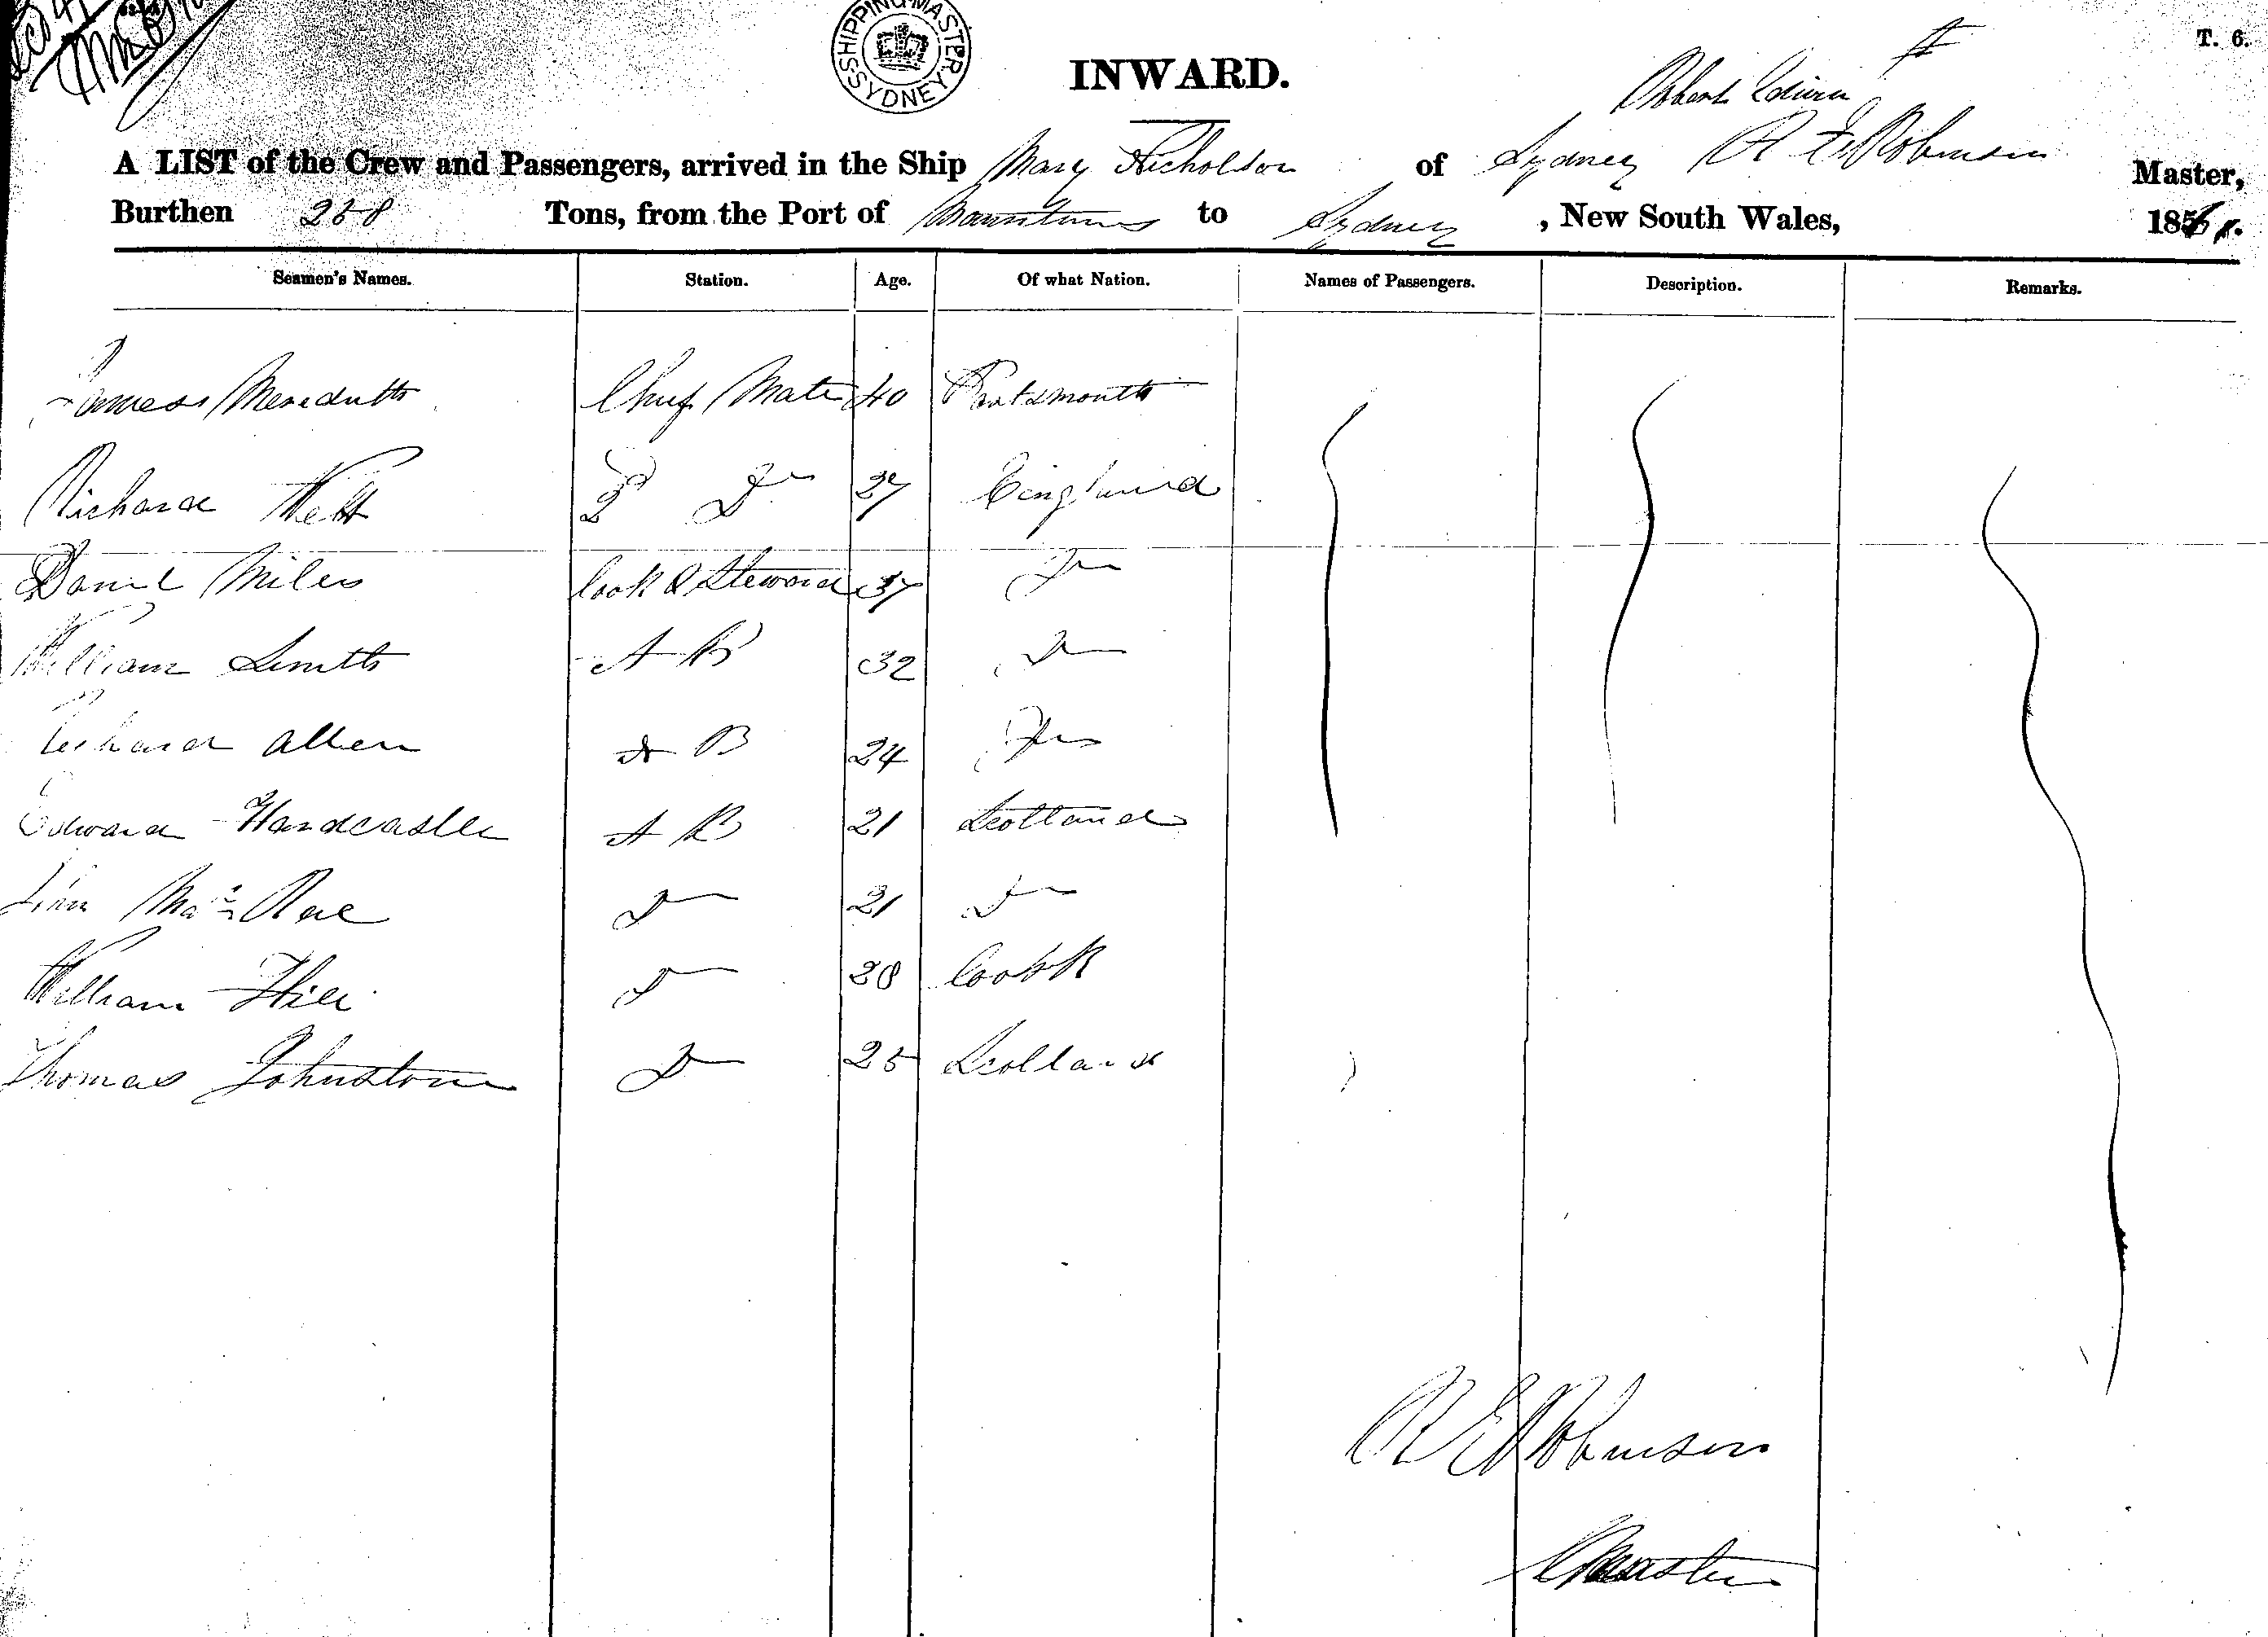 SHIPPING MASTER SYDNEY
INWARD.
T. 6.
Robert Edwin
A LIST of the Crew and Passengers, arrived in the Ship Mary Nicholson of Sydney R E Robinson Master,
Burthen 258 Tons, from the Port of to Sydney, New South Wales, 1861.
Seamen's Names. Station. Age. Of what Nation. Names of Passengers. Description. Remarks.
James Meredith Chief Mate 40 Portsmouth
Richard 2d Do 27 England
Daniel Miles Cook & Steward 37 Do
William Smith A B 32 Do
Richard Allen A B 24 Do
Edward Hardcastle A B 21 Scotland
MacRae Do 21 Do
William Hill Do 28
Thomas Johnstone Do 25 Scotland
R E Robinson
Master